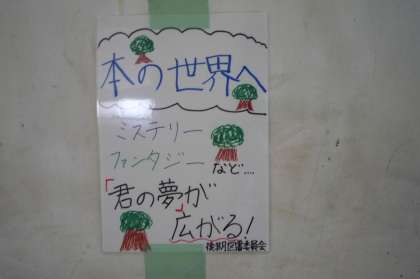 本の世界へ
ミステリー
ファンタジー
など….
「君の夢が」
広がる!
後期図書委員会